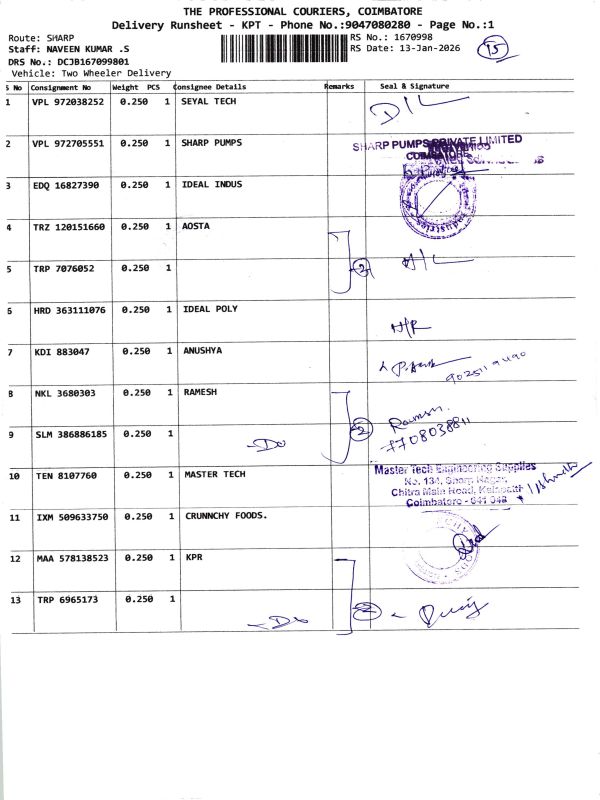 THE PROFESSIONAL COURIERS, COIMBATORE
Delivery Runsheet - KPT - Phone No.:9047080280 - Page No.:1
Route: SHARP
RS No.: 1670998
Staff: NAVEEN KUMAR .S
RS Date: 13-Jan-2026
15
DRS No.: DCJB167099801
Vehicle: Two Wheeler Delivery
S No Consignment No Weight PCS Consignee Details Remarks Seal & Signature
1 VPL 972038252 0.250 1 SEYAL TECH D/L
2 VPL 972705551 0.250 1 SHARP PUMPS SHARP PUMPS PRIVATE LIMITED
COIMBATORE
3 EDQ 16827390 0.250 1 IDEAL INDUS
Industries
4 TRZ 120151660 0.250 1 AOSTA
5 TRP 7076052 0.250 1 2 H/L
6 HRD 363111076 0.250 1 IDEAL POLY
N/R
7 KDI 883047 0.250 1 ANUSHYA
9025119490
8 NKL 3680303 0.250 1 RAMESH
2 Ramesh
7708038811
9 SLM 386886185 0.250 1 Do
10 TEN 8107760 0.250 1 MASTER TECH Master Tech Engineering Supplies
No. 134, Sharp Nagar,
Chitra Main Road, Kalapatti
Coimbatore - 641 048
11 IXM 509633750 0.250 1 CRUNNCHY FOODS.
12 MAA 578138523 0.250 1 KPR
13 TRP 6965173 0.250 1 Do 2